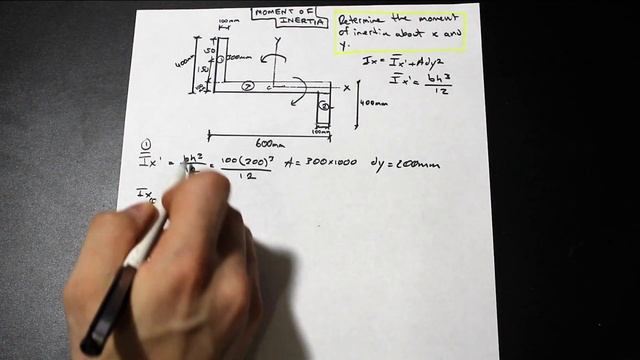 MOMENT OF
INERTIA
Determine the moment
of inertia about x and
y.
100mm
Y
400mm
150
300mm
150
①
②
③
C
X
400mm
100mm
600mm
Ix = Ix' + Ady2
Ix' = bh³
12
①
Ix' = bh³ = 100(300)³ A = 300×1000 dy = 200mm
12
Ix